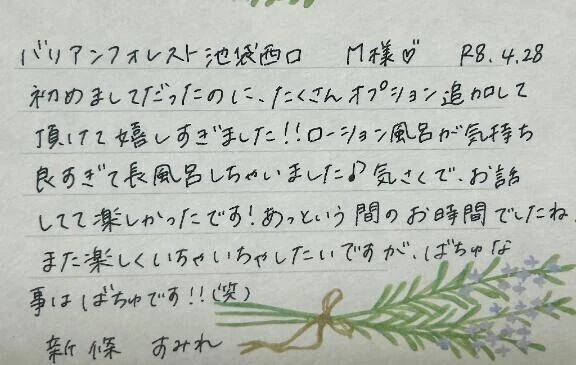 バリアンフォレスト池袋西口 M様♡ R8.4.28
初めましてだったのに、たくさんオプション追加して
頂けて嬉しすぎました!!ローション風呂が気持ち
良すぎて長風呂しちゃいました♪気さくで、お話
してて楽しかったです!あっという間のお時間でしたね、
また楽しくいちゃいちゃしたいですが、ばちゅな
事はばちゅです!!(笑)
新條 すみれ